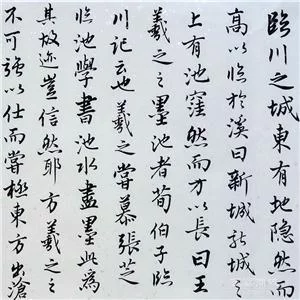 臨川之城東有地隐然而
高以临於溪曰新城新城之
上有池窪然而方以長曰王
羲之之墨池者荀伯子臨
川記云也羲之嘗慕張芝
临池學書池水盡墨此為
其故迹豈信然耶方羲之之
不可强以仕而嘗極東方出滄